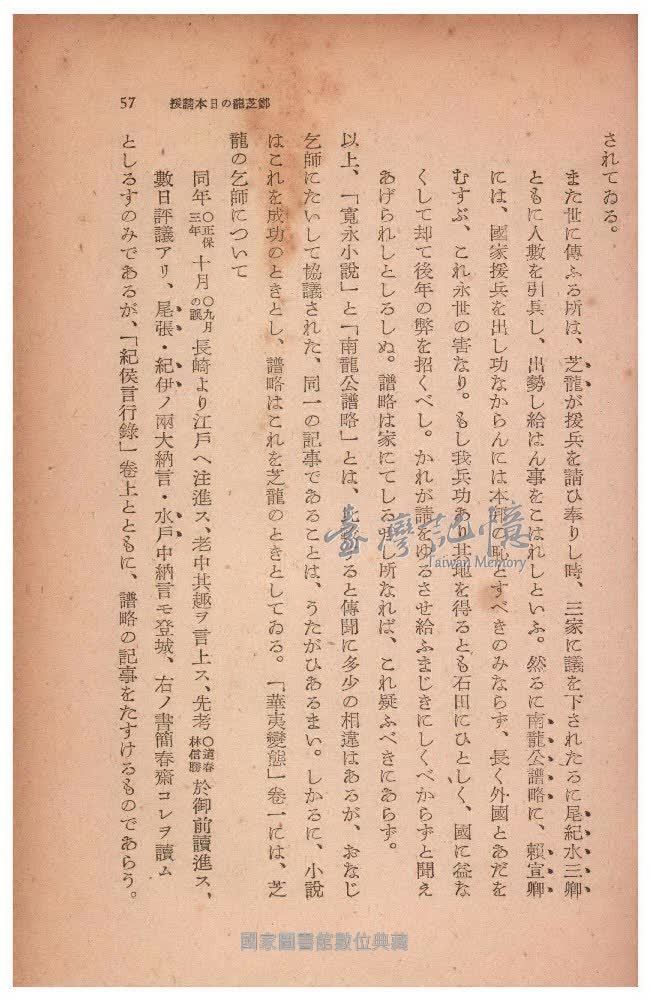 57　鄭芝龍の日本請援
されてゐる。
また世に傳ふる所は、芝龍が援兵を請ひ奉りし時、三家に議を下されたるに尾紀水三卿
ともに人數を引具し、出勢し給はん事をこはれしといふ。然るに南龍公譜略に、賴宣卿
には、國家援兵を出し功なからんには本邦の恥とすべきのみならず、長く外國とあだを
むすぶ、これ永世の害なり。もし我兵功あり其地を得るとも石田にひとしく、國に益な
くして却て後年の弊を招くべし。かれが請をゆるさせ給ふまじきにしくべからずと聞え
あげられしとしるしぬ。譜略は家にてしるせし所なれば、これ疑ふべきにあらず。
以上、「寬永小說」と「南龍公譜略」とは、比較すると傳聞に多少の相違はあるが、おなじ
乞師にたいして協議された、同一の記事であることは、うたがひあるまい。しかるに、小說
はこれを成功のときとし、譜略はこれを芝龍のときとしてゐる。「華夷變態」卷一には、芝
龍の乞師について
同年〇正保三年十月〇九月の誤長崎より江戶ヘ注進ス、老中其趣ヲ言上ス、先考〇道春林信勝於御前讀進ス、
數日評議アリ、尾張・紀伊ノ兩大納言・水戶中納言モ登城、右ノ書簡春齋コレヲ讀ム
としるすのみであるが、「紀侯言行錄」卷上とともに、譜略の記事をたすけるものであらう。
臺灣記憶
Taiwan Memory
國家圖書館數位典藏